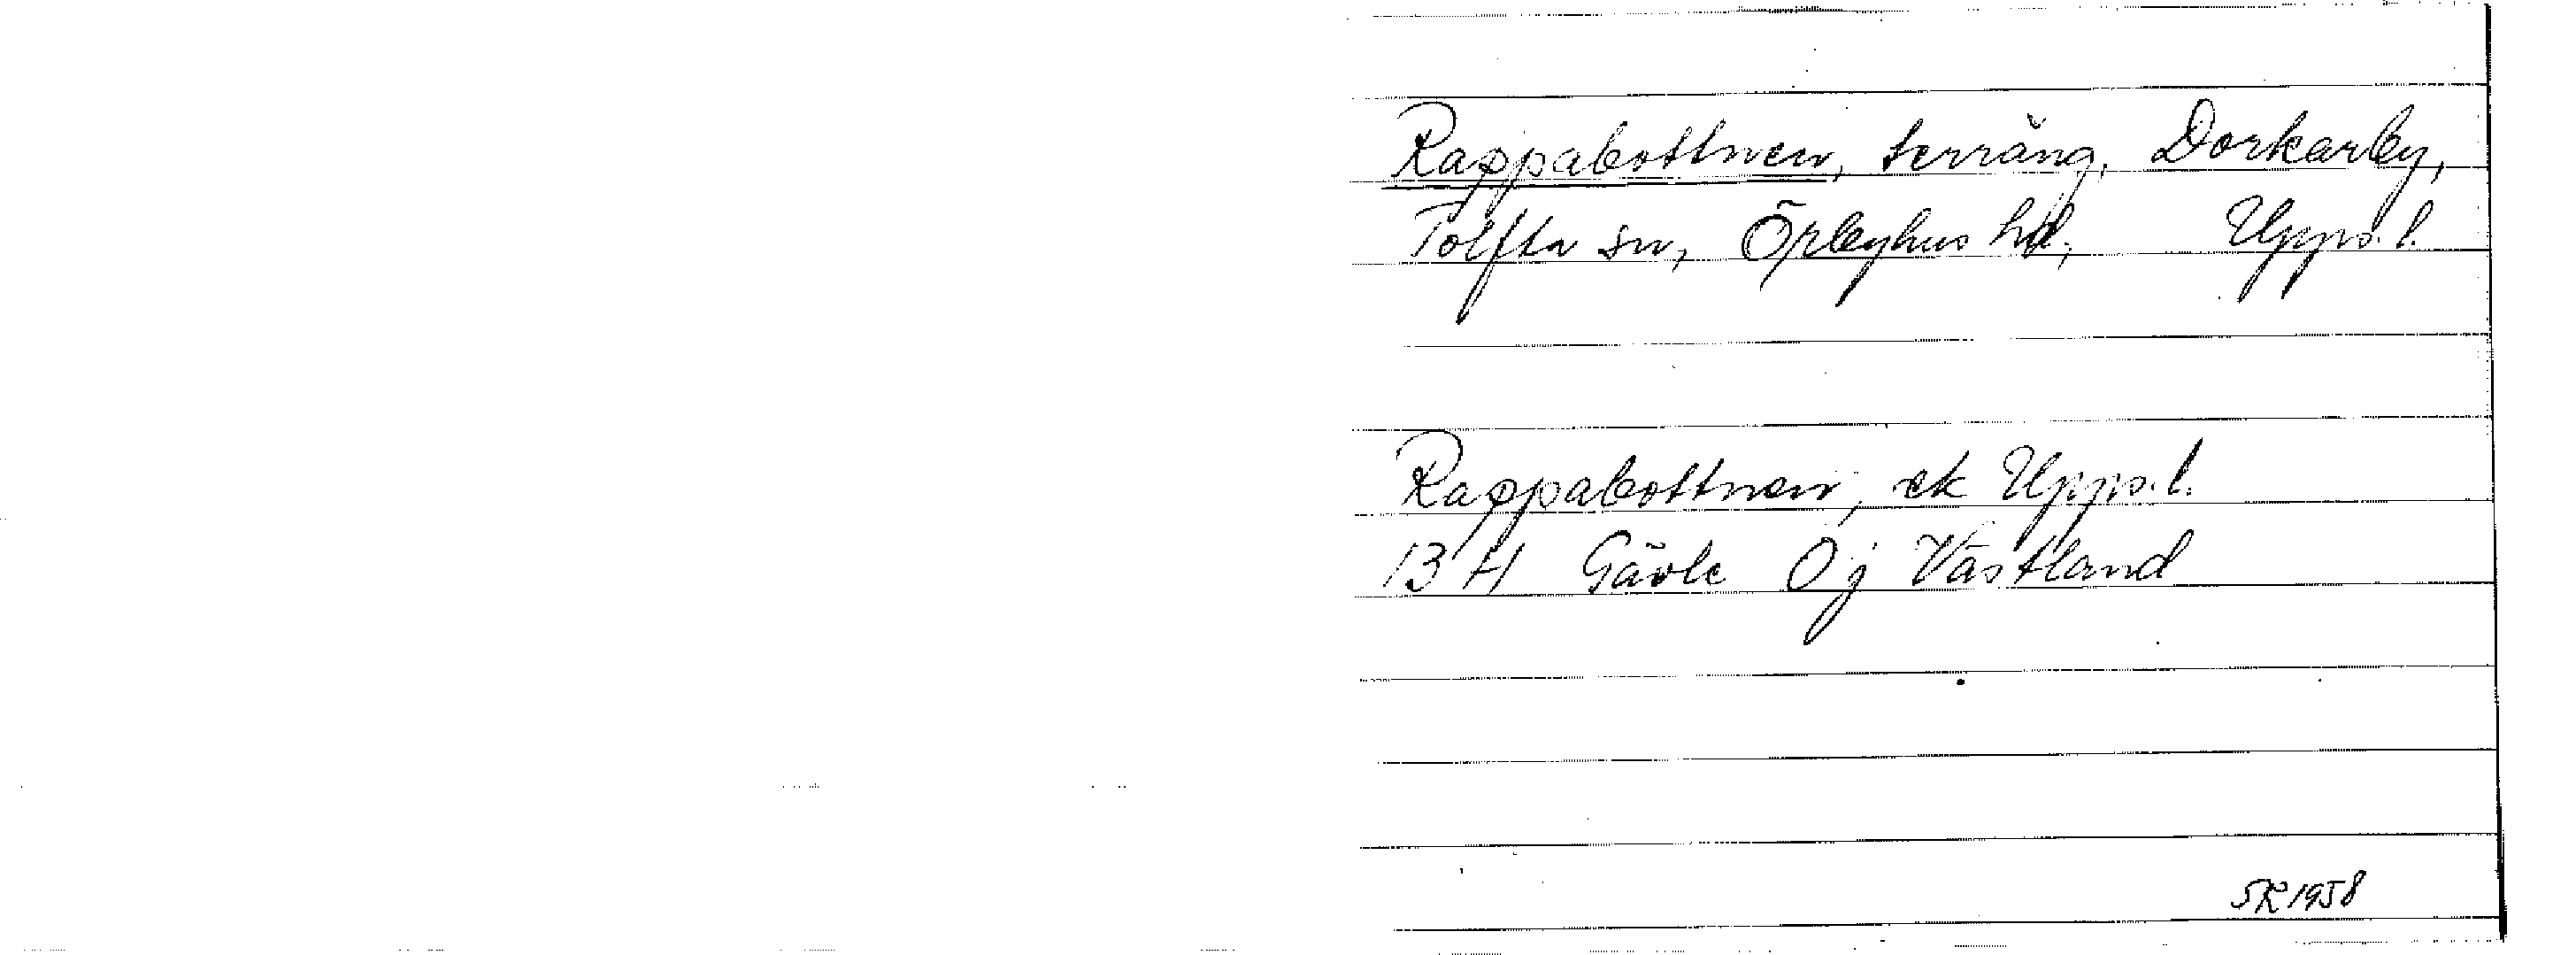 Rappabottnen, terräng, Dorkarby,
Tolfta sn, Örbyhus hd, Upps. l.
Rappabottnen, ek Upps. l.
13 H Gävle Oj Västland
SR 1958